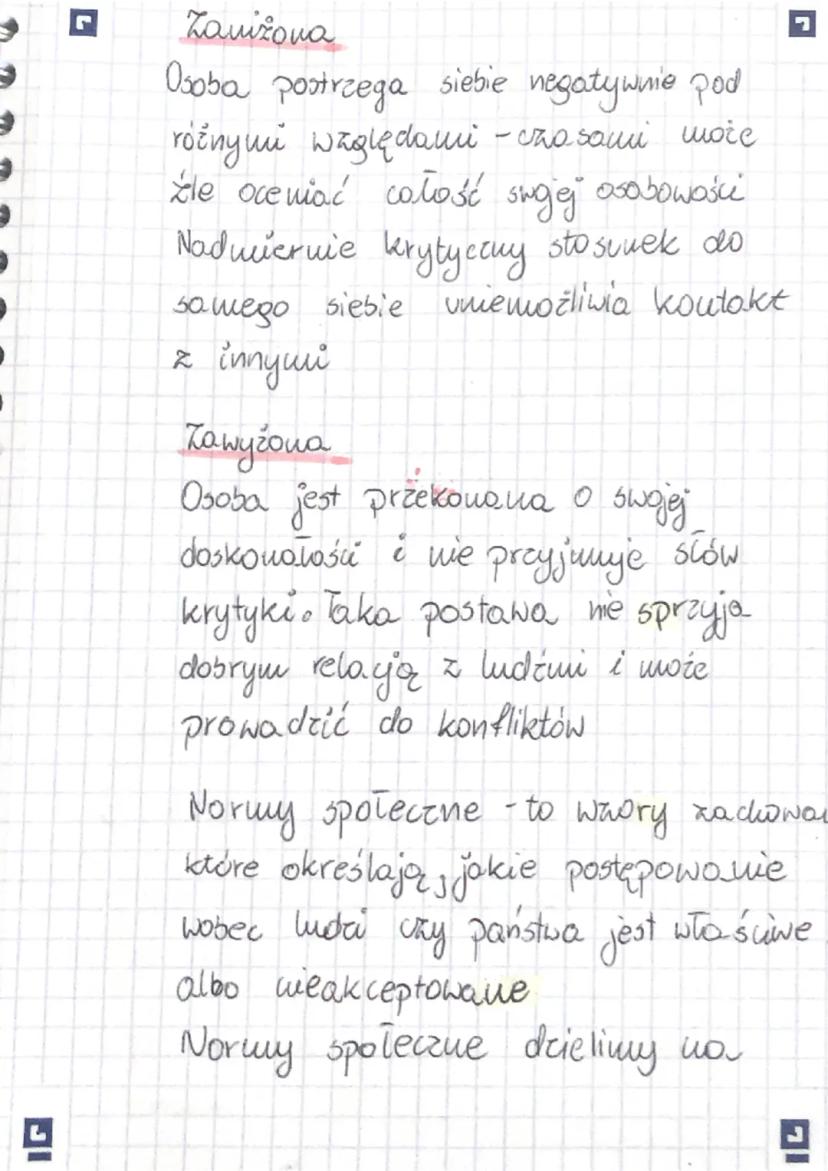 Zaniżona
Osoba postrzega siebie negatywnie pod
różnymi względami - czasami może
źle oceniać całość swojej osobowości
Nadmiernie krytyczny stosunek do
samego siebie uniemożliwia kontakt
z innymi
Zawyżona
Osoba jest przekonana o swojej
doskonałości i nie przyjmuje słów
krytyki. Taka postawa nie sprzyja
dobrym relacją z ludźmi i może
prowadzić do konfliktów
Normy społeczne - to wzory zachowa
które określają, jakie postępowanie
wobec ludzi czy państwa jest właściwe
albo nieakceptowane
Normy społeczne dzielimy na